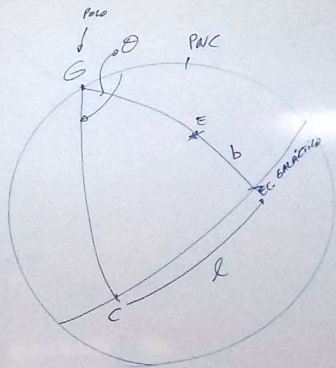 POLO
G
θ
PNC
E
b
EC. GALÁCTICO
l
C